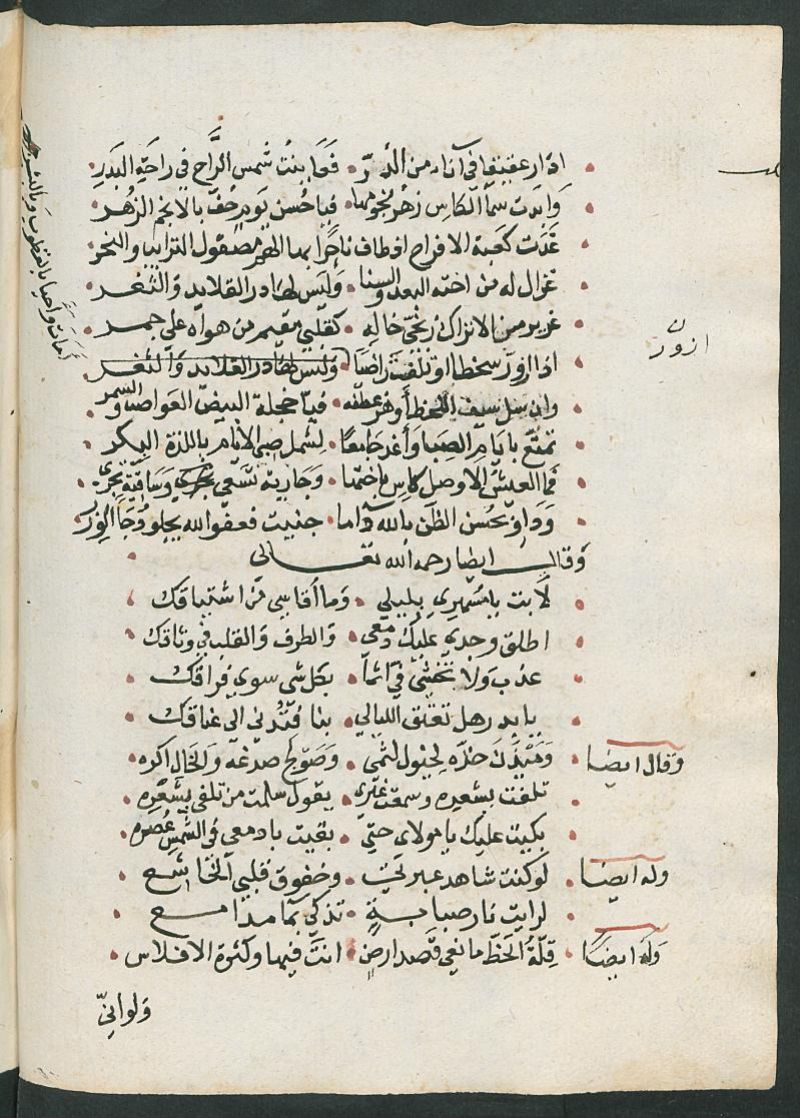 ادار عقيقها في آناء من الدرّ • فَعَاينتُ شمس الرَّاح في راحَةِ البَدرِ
وَابدت سما الكاس زهر نجومها • فيا حُسن يوم حُفّ بالانجم الزهر
غَدَت كعبة الافراح افطاف تاجرًا بها الظهر مصقول الترايب والنحر
غزال له من اخته البعد والسنا • وَليس لها در القلايد وَالثغر
غرير من الاتراك زنجي خاله • كقلبي مقيم من هواه على جمر
اذا ازورّ سخطا او تلفت راضيًا • وليس لها در القلايد والثغر
وان سل سيف اللحظ أو هز عطفه • فيا خجلة البيض القواضب والسمر
تمتّع بايام الصِبا وَأغد جامعًا • لشمل صبى الايام باللذة البكر
فما العيش الا وصل كاس باختها • وَجَارية تسعى بخمر وَساقية تجري
وَدَاوِ بحُسن الظن بالله دآء ما • جنيت فعفو الله يجلو دُجَا الوزر
وَقالـــ ايضا رحمه الله تعـــالى
لا بت يا مسهري بليلي • وَما اُقاسي من اشتياقك
اطلق وجدي عليك دمعي • وَالطرف وَالقلب في وثاقك
عذب وَلا تختشي في اثمًا • بكل شي سوى فراقك
يا بدر هل تعتق الليالي • بنا فتُدني الى عناقك
وَقال ايضا
وَمَيْدَان خدّه لخيول لثمي • وَصَولج صدغه وَالخال اكره
تلفت بشعره وسمعت غيري • يقول سلمت من تلفي بشعْره
بكيت عليك يا مولاي حتى • بقيت بادمعي في الشمس عصره
وله ايضا
لو كنت شاهد عبرتي • وخفوق قلبي الخاشع
لرايت نار صبابة • تذكى بما مدامع
وَلَهُ ايضًا
قِلّةُ الحَظّ مانعي قصد ارض • انت فيها وكثرة الافلاس
وَلواني
ازورّ